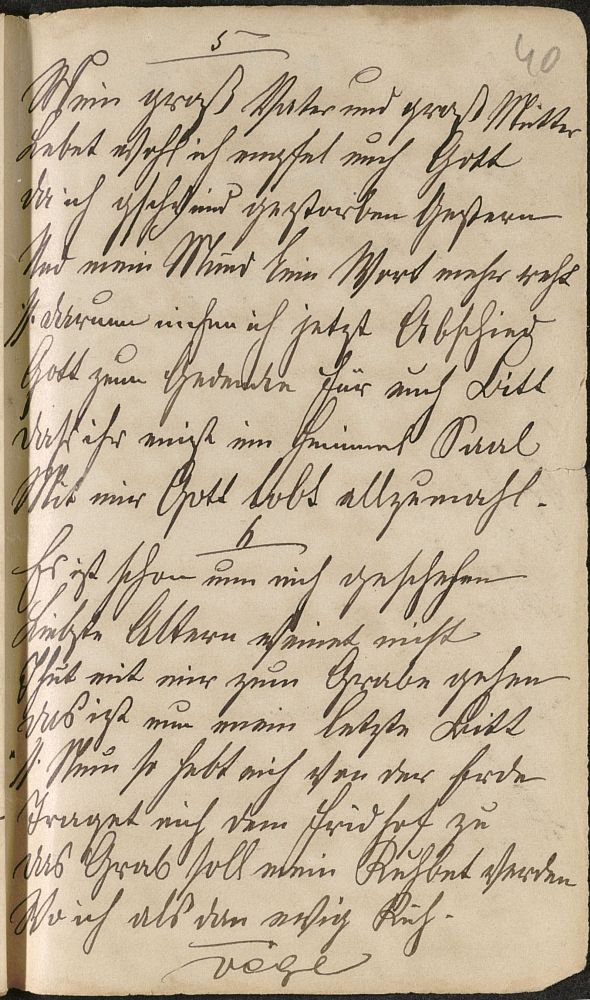 5
40
Mein groß Vater und groß Mutter
Lebet wohl ich empfel euch Gott
da ich gschwind gestorben gestern
Und mein Mund kein Wort mehr redt
//: darum nehm ich jetzt Abschied
Gott zum Gedenken für euch Bitt
daß ihr einst im Himmel Saal
Mit mir Gott lobt allzumahl.
6
Es ist schon um mich geschehen
Liebste Altern weinet nicht
Thut mit mir zum Grabe gehen
das ist nun mein letzte Bitt
//: Nun so hebt mich von der Erde
Traget mich dem Fridhof zu
das Grab soll mein Ruhbet werden
Wo ich als dan ewig Ruh.